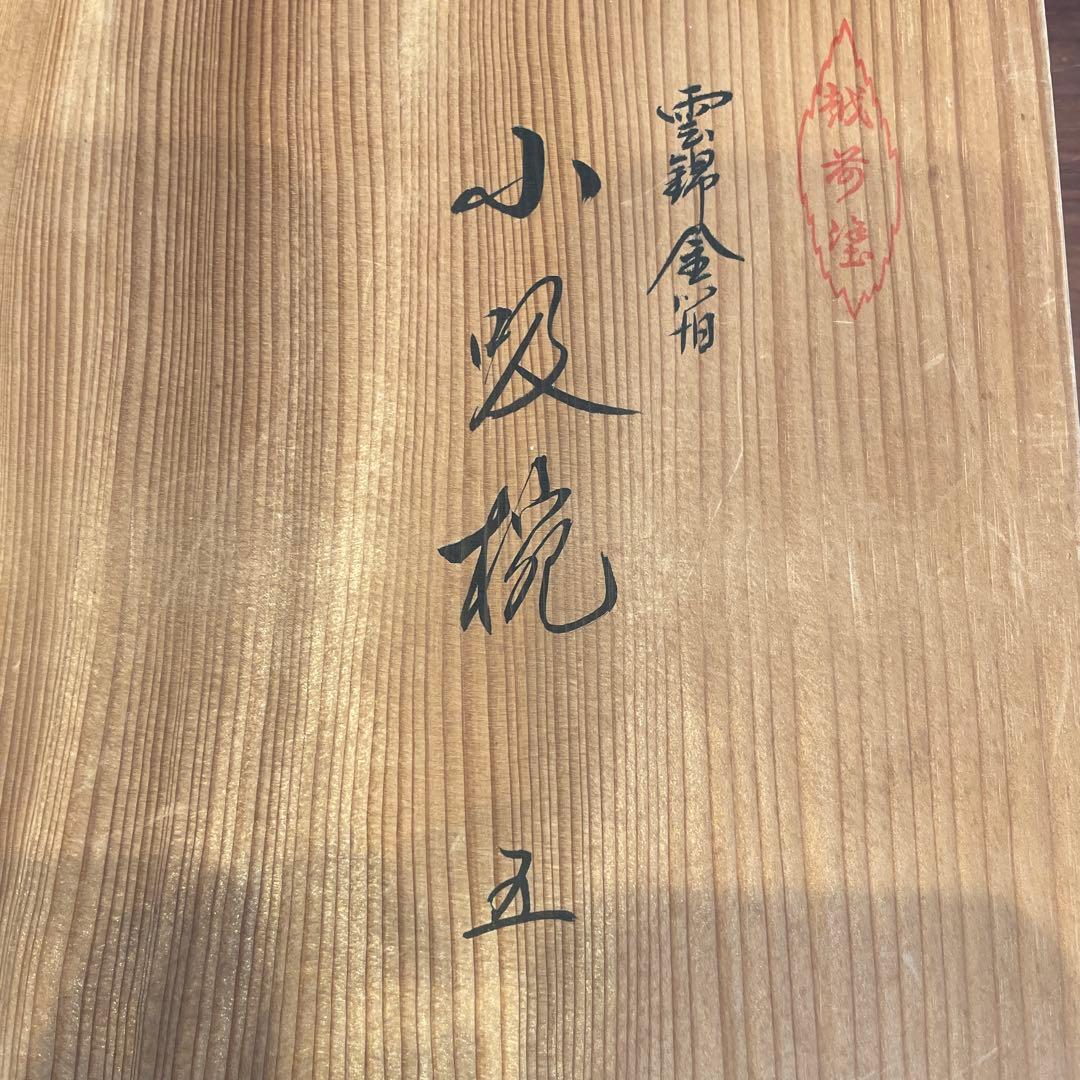 越前塗
雲錦金箔
小吸椀 五